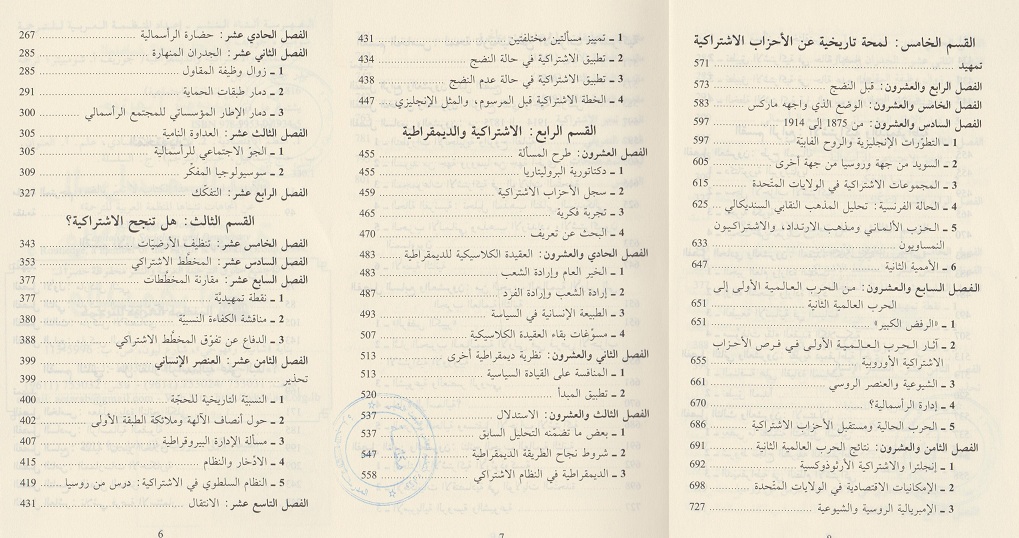 الفصل الحادي عشر: حضارة الرأسمالية ... 267
الفصل الثاني عشر: الجدران المنهارة ... 285
1 ـ زوال وظيفة المقاول ... 285
2 ـ دمار طبقات الحماية ... 291
3 ـ دمار الإطار المؤسساتي للمجتمع الرأسمالي ... 300
الفصل الثالث عشر: العداوة النامية ... 305
1 ـ الجوّ الاجتماعي للرأسمالية ... 305
2 ـ سوسيولوجيا المفكّر ... 309
الفصل الرابع عشر: التفكّك ... 327
القسم الثالث: هل تنجح الاشتراكية؟
الفصل الخامس عشر: تنظيف الأرضيّات ... 343
الفصل السادس عشر: المخطّط الاشتراكي ... 353
الفصل السابع عشر: مقارنة المخطّطات ... 377
1 ـ نقطة تمهيديّة ... 377
2 ـ مناقشة الكفاءة النسبيّة ... 380
3 ـ الدفاع عن تفوّق المخطّط الاشتراكي ... 388
الفصل الثامن عشر: العنصر الإنساني ... 399
تحذير ... 399
1 ـ النسبيّة التاريخية للحجّة ... 400
2 ـ حول أنصاف الآلهة وملائكة الطبقة الأولى ... 402
3 ـ مسألة الإدارة البيروقراطية ... 407
4 ـ الادّخار والنظام ... 415
5 ـ النظام السلطوي في الاشتراكية: درس من روسيا ... 419
الفصل التاسع عشر: الانتقال ... 431
6
1 ـ تمييز مسألتين مختلفتين ... 431
2 ـ تطبيق الاشتراكية في حالة النضج ... 434
3 ـ تطبيق الاشتراكية في حالة عدم النضج ... 438
4 ـ الخطة الاشتراكية قبل المرسوم، والمثل الإنجليزي ... 447
القسم الرابع: الاشتراكية والديمقراطية
الفصل العشرون: طرح المسألة ... 455
1 ـ دكتاتورية البروليتاريا ... 455
2 ـ سجل الأحزاب الاشتراكية ... 459
3 ـ تجربة فكرية ... 465
4 ـ البحث عن تعريف ... 470
الفصل الحادي والعشرون: العقيدة الكلاسيكية للديمقراطية ... 483
1 ـ الخير العام وإرادة الشعب ... 483
2 ـ إرادة الشعب وإرادة الفرد ... 487
3 ـ الطبيعة الإنسانية في السياسة ... 493
4 ـ مسوّغات بقاء العقيدة الكلاسيكية ... 507
الفصل الثاني والعشرون: نظرية ديمقراطية أخرى ... 513
1 ـ المنافسة على القيادة السياسية ... 513
2 ـ تطبيق المبدأ ... 520
الفصل الثالث والعشرون: الاستدلال ... 537
1 ـ بعض ما تضمّنه التحليل السابق ... 537
2 ـ شروط نجاح الطريقة الديمقراطية ... 547
3 ـ الديمقراطية في النظام الاشتراكي ... 558
7
القسم الخامس: لمحة تاريخية عن الأحزاب الاشتراكية
تمهيد ... 571
الفصل الرابع والعشرون: قبل النضج ... 573
الفصل الخامس والعشرون: الوضع الذي واجهه ماركس ... 583
الفصل السادس والعشرون: من 1875 إلى 1914 ... 597
1 ـ التطوّرات الإنجليزية والروح الفابيّة ... 597
2 ـ السويد من جهة وروسيا من جهة أخرى ... 605
3 ـ المجموعات الاشتراكية في الولايات المتّحدة ... 615
4 ـ الحالة الفرنسية: تحليل المذهب النقابي السنديكالي ... 625
5 ـ الحزب الألماني ومذهب الارتداد، والاشتراكيون
النمساويون ... 633
6 ـ الأممية الثانية ... 647
الفصل السابع والعشرون: من الحرب العالمية الأولى إلى
الحرب العالمية الثانية ... 651
1 ـ «الرفض الكبير» ... 651
2 ـ آثار الحرب العالمية الأولى في فرص الأحزاب
الاشتراكية الأوروبية ... 655
3 ـ الشيوعية والعنصر الروسي ... 661
4 ـ إدارة الرأسمالية؟ ... 670
5 ـ الحرب الحالية ومستقبل الأحزاب الاشتراكية ... 686
الفصل الثامن والعشرون: نتائج الحرب العالمية الثانية ... 691
1 ـ إنجلترا والاشتراكية الأرثوذوكسية ... 692
2 ـ الإمكانيات الاقتصادية في الولايات المتّحدة ... 698
3 ـ الإمبريالية الروسية والشيوعية ... 727